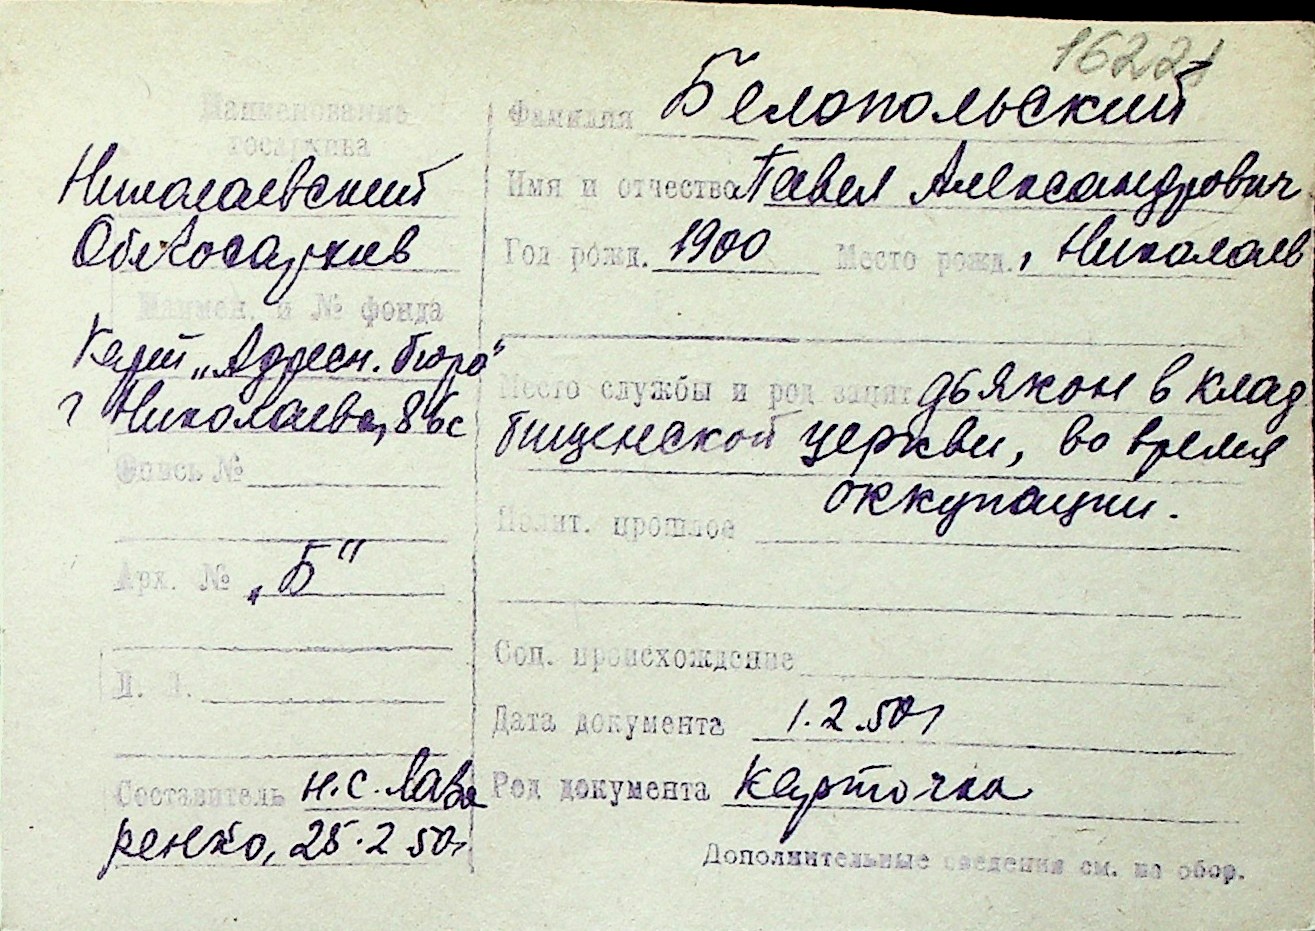 16221
Наименование
госархива
Николаевский
Облгосархив
Наимен. и № фонда
„Адресн. бюро“
г Николаева,
Опись №
Арх. № „Б“
Л. Л.
Составитель н.с. Лавре
ренко, 25.2 50г
Фамилия Белопольский
Имя и отчество Павел Александрович
Год рожд. 1900 Место рожд. г Николаев
Место службы и род занят дьякон в клад
бищенской церкви, во время
оккупации.
Полит. прошлое
Соц. происхождение
Дата документа 1.2.50г
Род документа карточка
Дополнительные сведения см. на обор.